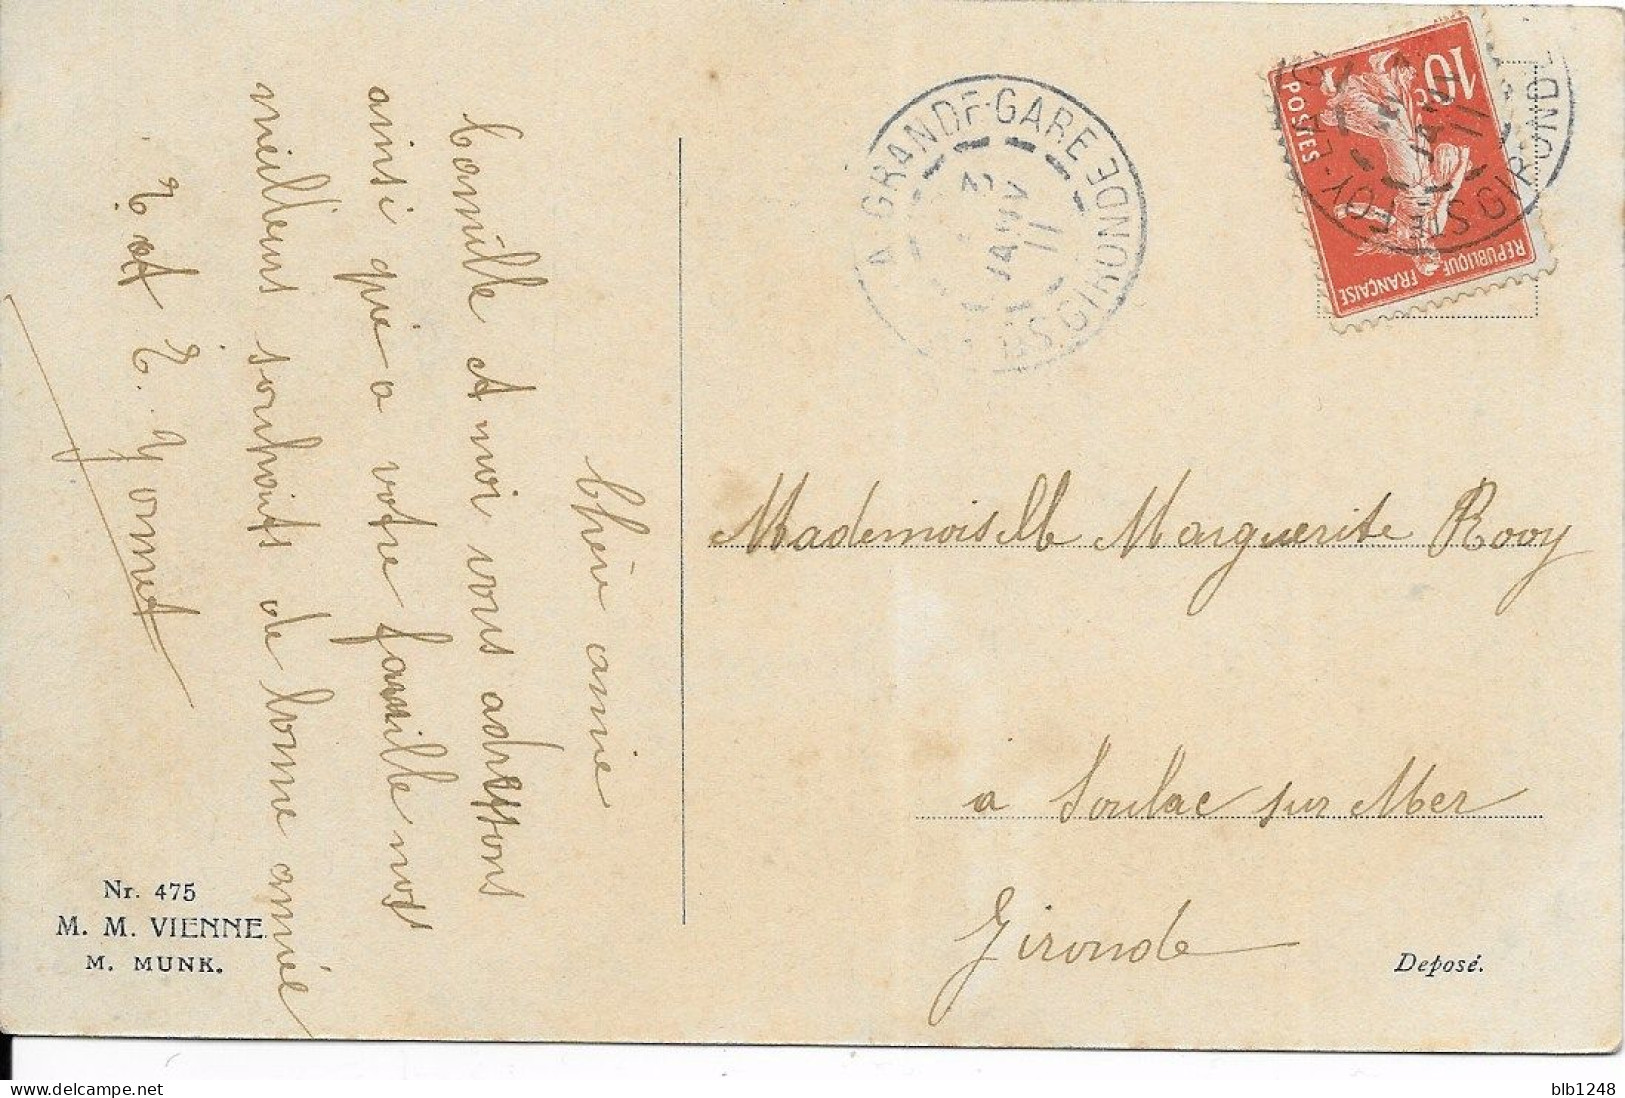 Chère amie
Camille et moi vous adressons
ainsi que a votre famille nos
meilleurs souhaits de bonne année
Mademoiselle Marguerite Rooy
a Soulac sur Mer
Gironde
Nr. 475
M. M. VIENNE
M. MUNK.
Deposé.
GRANDE-GARE GIRONDE
JANV
11
GIRONDE
10c
POSTES
REPUBLIQUE
FRANÇAISE
STE FOY-LA-G
JANV
11
GIRONDE
blb1248